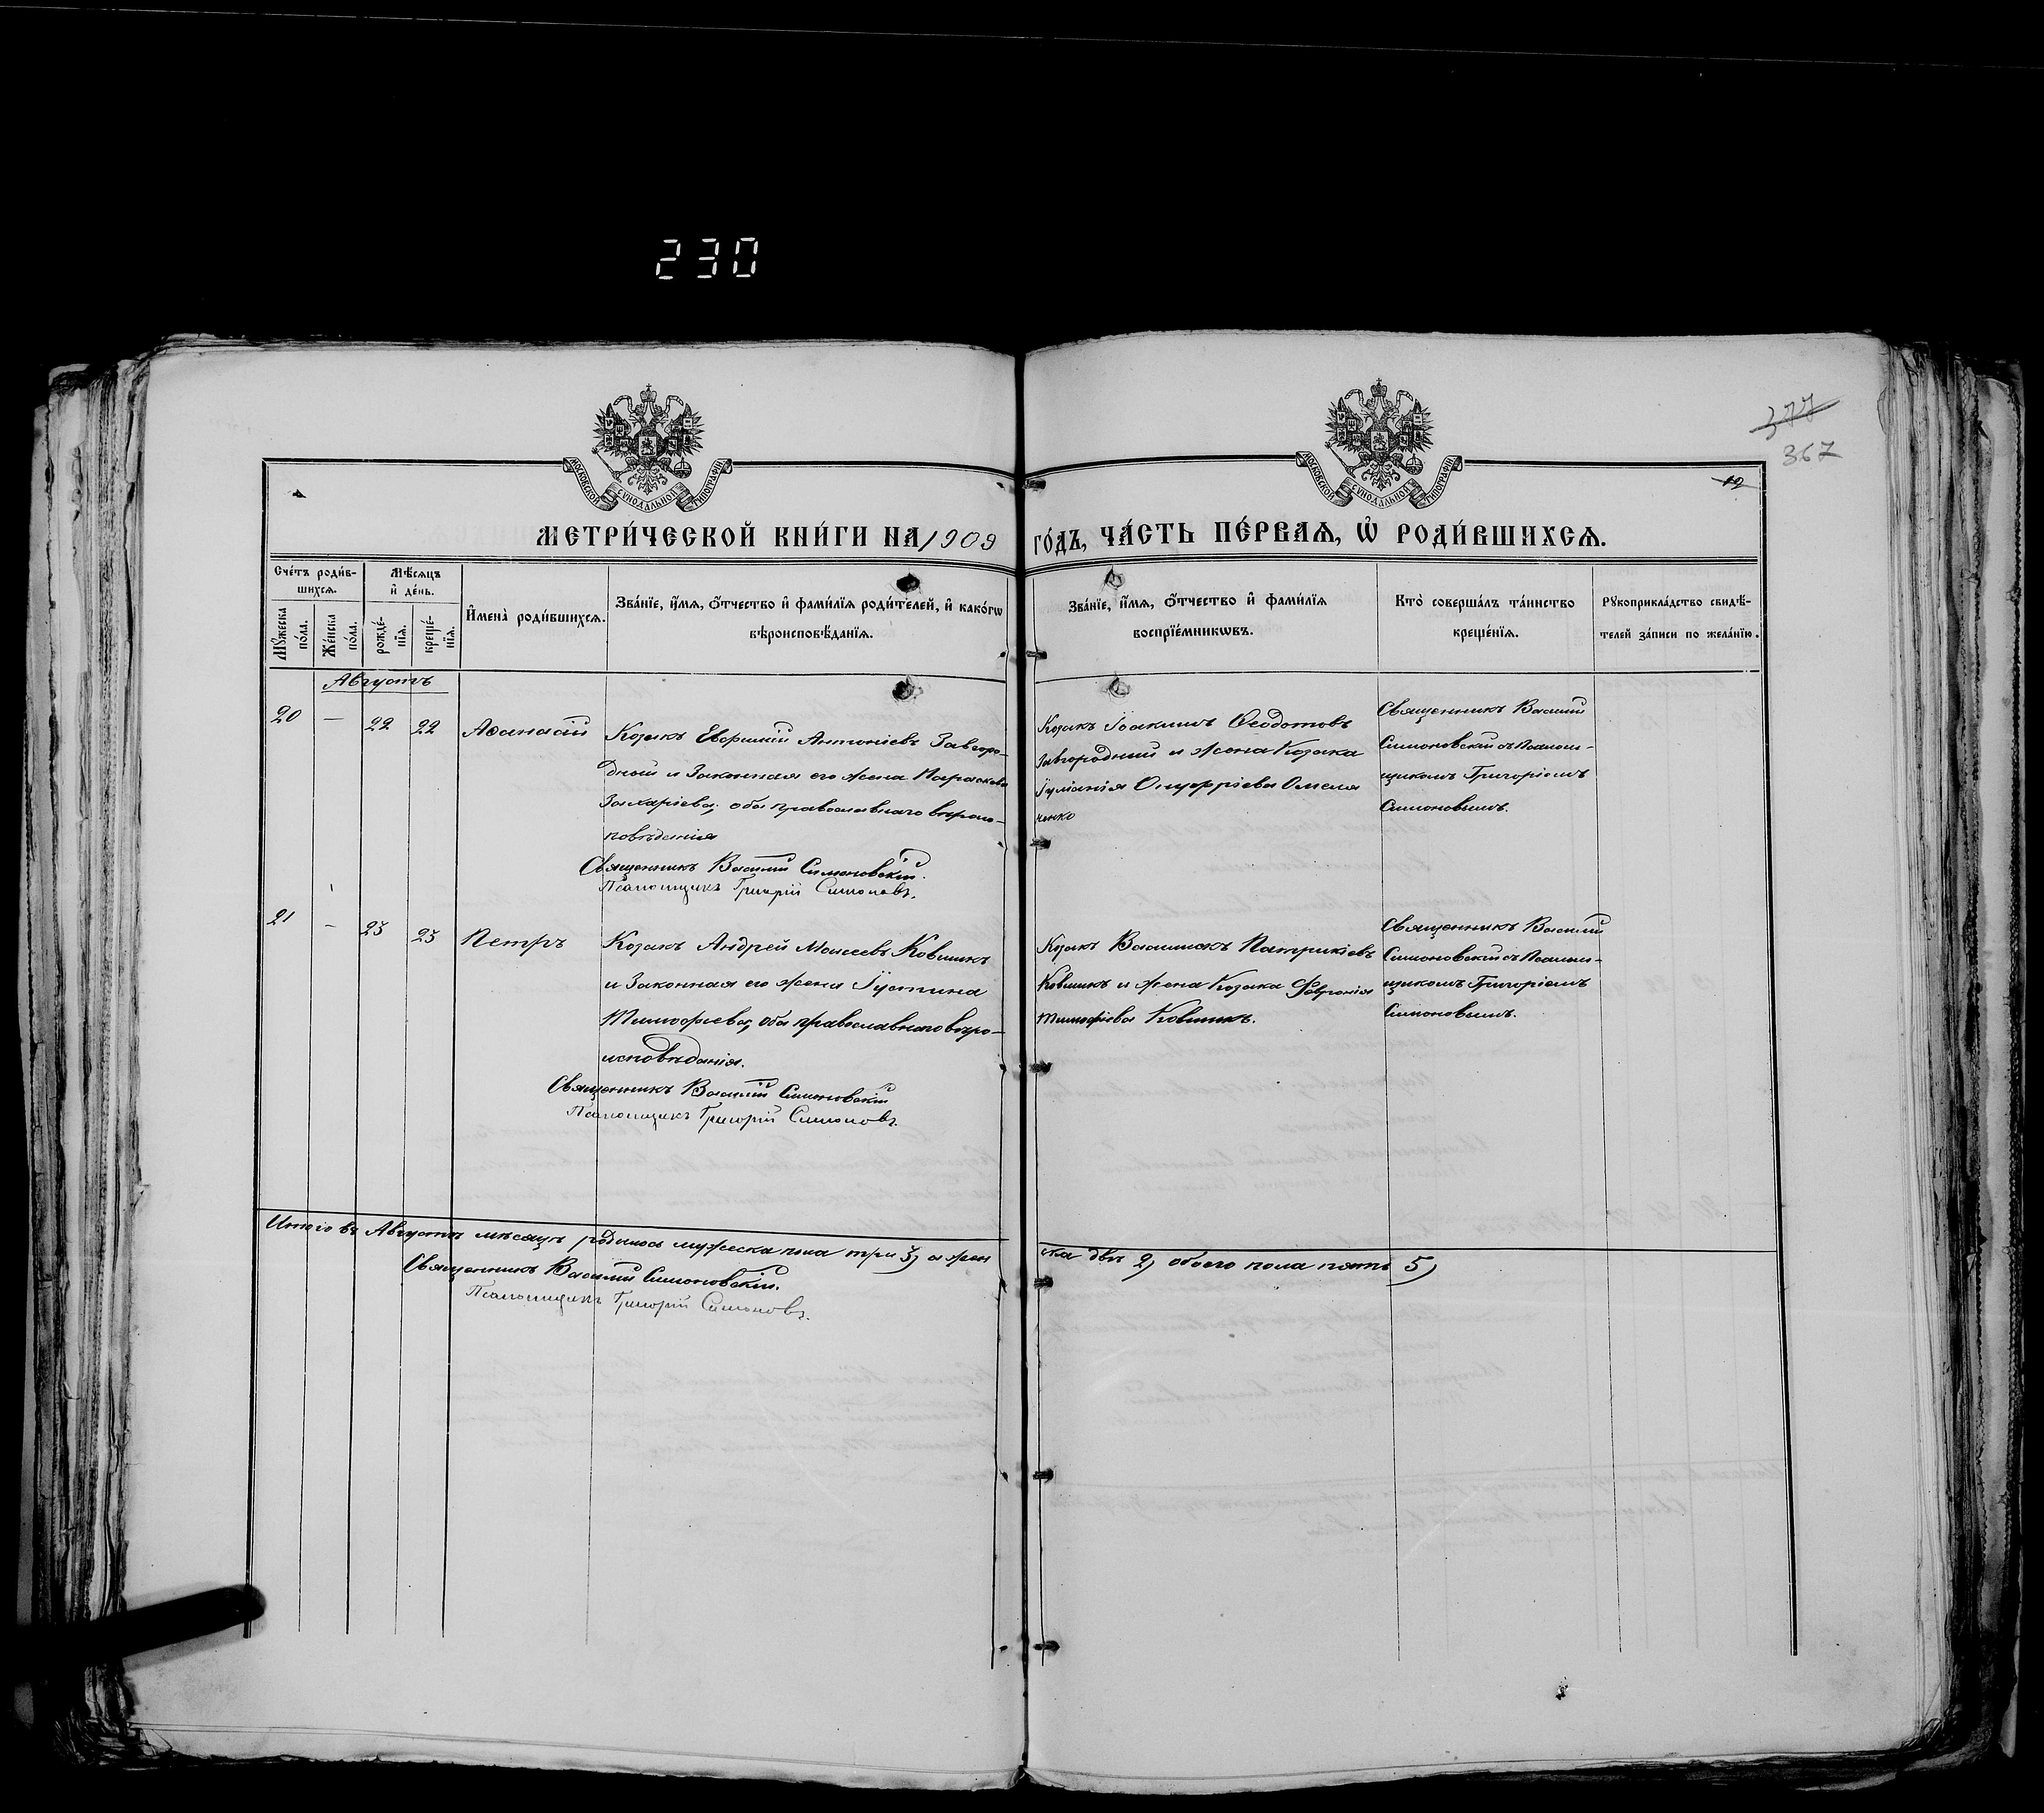 230
377
367
12
МОСКОВСКОЙ СѴНОДАЛЬНОЙ ТИПОГРАФІИ
МОСКОВСКОЙ СѴНОДАЛЬНОЙ ТИПОГРАФІИ
МЕТРИ́ЧЕСКОЙ КНИ́ГИ НА 1909 ГО́ДЪ, ЧА́СТЬ ПЕ́РВАЯ, Ѡ҆ РОДИ́ВШИХСЯ.
Сче́тъ роди́в-
шихсѧ.
Мꙋ́жеска по́ла.
Же́нска по́ла.
Мѣ́сѧцъ
и҆ де́нь.
рожде́-
нїѧ.
креще́-
нїѧ.
И҆мена̀ роди́вшихсѧ.
Зва́нїе, и҆́мѧ, ѻ҆́тчество и҆ фами́лїѧ роди́телей, и҆ како́гѡ
вѣроисповѣ́данїѧ.
Зва́нїе, и҆́мѧ, ѻ҆́тчество и҆ фами́лїѧ
воспрїе́мникѡвъ.
Кто̀ соверша́лъ та́инство
креще́нїѧ.
Рꙋкоприкла́дство свидѣ́-
телей за́писи по жела́нїю.
Августъ
20 — 22 22 Аѳанасій
Козакъ Евфимій Антоніевъ Завгоро-
дный и законная его жена Параскева
Захаріева, оба православнаго вѣроис-
повѣданія
Священникъ Василій Симоновскій.
Псаломщикъ Григорій Симоновъ.
Козакъ Іоакимъ Ѳеодотовъ
Завгородный и жена козака
Іуліанія Онуфріева Омеля
ченко
Священникъ Василій
Симоновскій съ Псалом-
щикомъ Григоріемъ
Симоновымъ.
21 — 25 25 Петръ
Козакъ Андрей Моисеевъ Ковшикъ
и законная его жена Іустина
Тимофіева, оба православнаго вѣро-
исповѣданія.
Священникъ Василій Симоновскій
Псаломщикъ Григорій Симоновъ.
Козакъ Патрикіевъ
Ковшикъ и жена козака Февронія
Тимофіева Ковшикъ.
Священникъ Василій
Симоновскій съ Псалом-
щикомъ Григоріемъ
Симоновымъ.
Итого въ Августѣ мѣсяцѣ родилось мужеска пола три 3) а жен
ска двѣ 2) обоего пола пять 5)
Священникъ Василій Симоновскій.
Псаломщикъ Григорій Симоновъ.